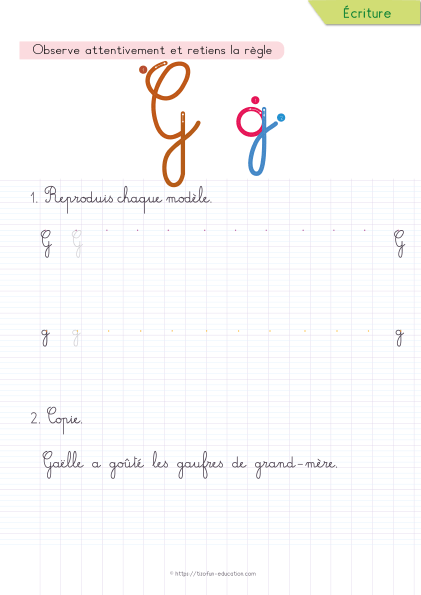 Écriture
Observe attentivement et retiens la règle
G g
1. Reproduis chaque modèle.
G G G
g g g
2. Copie.
Gaëlle a goûté les gaufres de grand-mère.
© https://tisofun-education.com